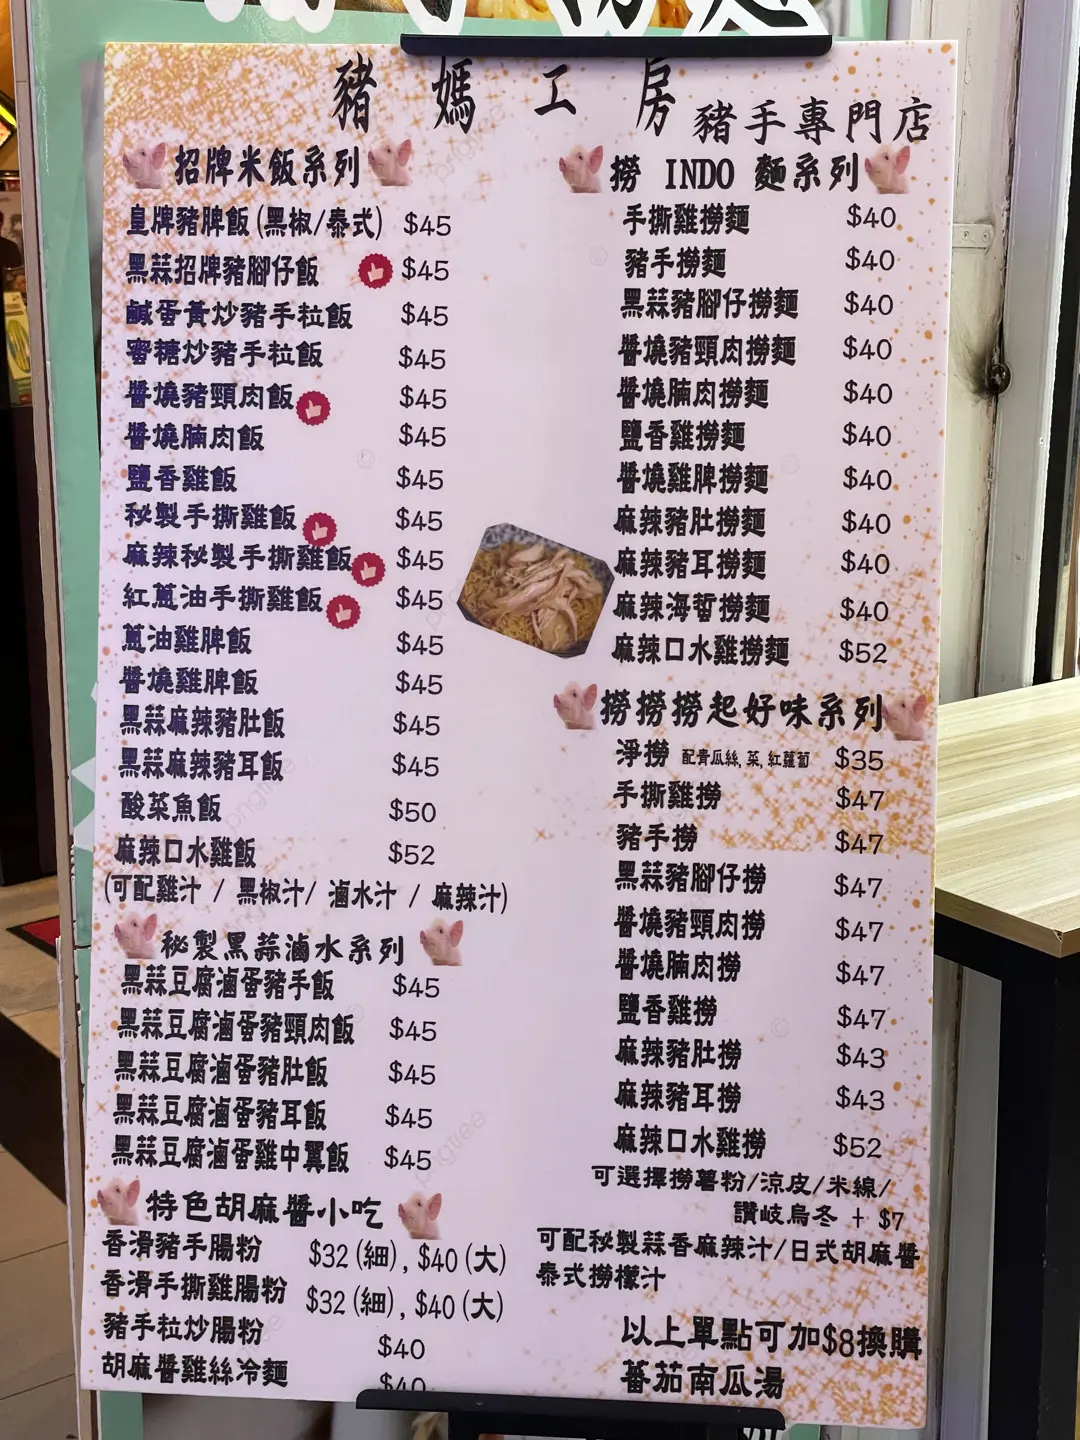 豬媽工房 豬手專門店
招牌米飯系列
皇牌豬脾飯(黑椒/泰式) $45
黑蒜招牌豬腳仔飯 $45
鹹蛋黃炒豬手粒飯 $45
蜜糖炒豬手粒飯 $45
醬燒豬頸肉飯 $45
醬燒腩肉飯 $45
鹽香雞飯 $45
秘製手撕雞飯 $45
麻辣秘製手撕雞飯 $45
紅蔥油手撕雞飯 $45
蔥油雞脾飯 $45
醬燒雞脾飯 $45
黑蒜麻辣豬肚飯 $45
黑蒜麻辣豬耳飯 $45
酸菜魚飯 $50
麻辣口水雞飯 $52
(可配雞汁 / 黑椒汁/ 滷水汁 / 麻辣汁)
秘製黑蒜滷水系列
黑蒜豆腐滷蛋豬手飯 $45
黑蒜豆腐滷蛋豬頸肉飯 $45
黑蒜豆腐滷蛋豬肚飯 $45
黑蒜豆腐滷蛋豬耳飯 $45
黑蒜豆腐滷蛋雞中翼飯 $45
特色胡麻醬小吃
香滑豬手腸粉 $32(細), $40(大)
香滑手撕雞腸粉 $32(細), $40(大)
豬手粒炒腸粉 $40
胡麻醬雞絲冷麵 $40
撈 INDO 麵系列
手撕雞撈麵 $40
豬手撈麵 $40
黑蒜豬腳仔撈麵 $40
醬燒豬頸肉撈麵 $40
醬燒腩肉撈麵 $40
鹽香雞撈麵 $40
醬燒雞脾撈麵 $40
麻辣豬肚撈麵 $40
麻辣豬耳撈麵 $40
麻辣海蜇撈麵 $40
麻辣口水雞撈麵 $52
撈撈撈起好味系列
淨撈 配青瓜絲,菜,紅蘿蔔 $35
手撕雞撈 $47
豬手撈 $47
黑蒜豬腳仔撈 $47
醬燒豬頸肉撈 $47
醬燒腩肉撈 $47
鹽香雞撈 $47
麻辣豬肚撈 $43
麻辣豬耳撈 $43
麻辣口水雞撈 $52
可選擇撈薯粉/涼皮/米線/
讚岐烏冬 + $7
可配秘製蒜香麻辣汁/日式胡麻醬
泰式撈檬汁
以上單點可加$8換購
蕃茄南瓜湯